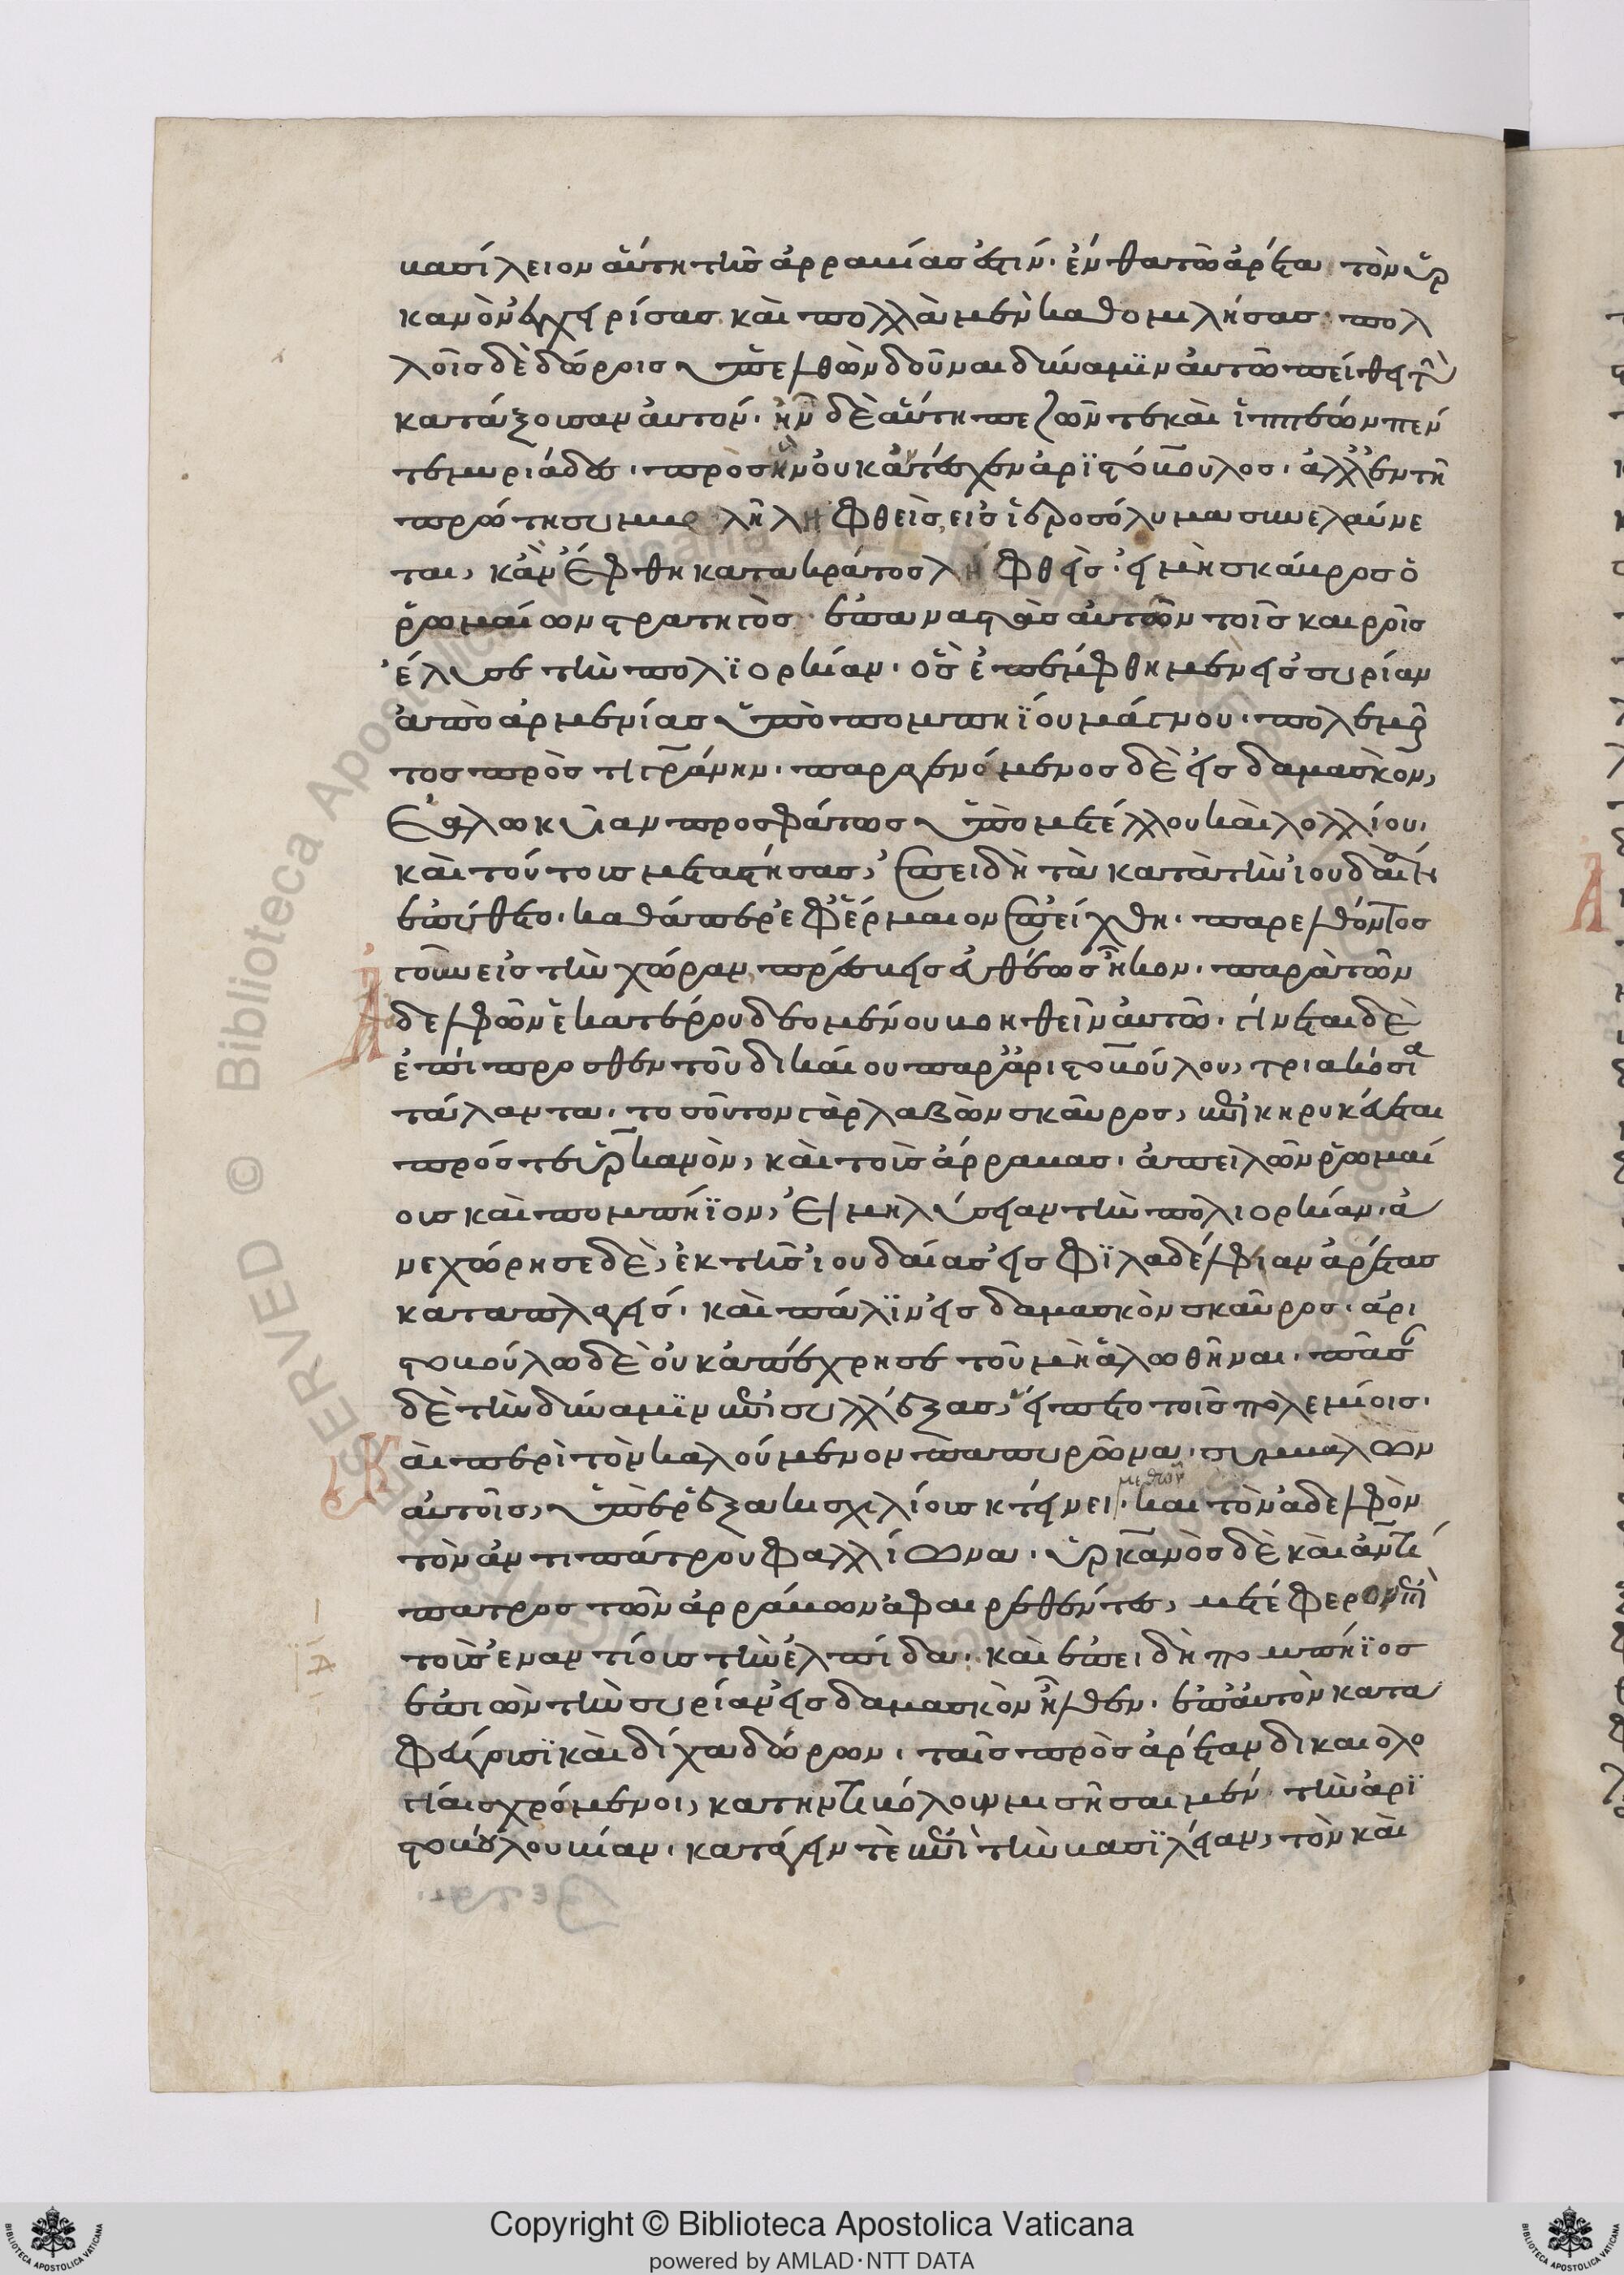 βασίλειον αὕτη τῆς ἀρραβίας ἐστίν· ἔνθα τῶ ἀρέτα τὸν ὑρ
κανὸν ἐγχειρίσας καὶ πολλὰ μὲν καθομιλήσας· πολ
λοῖς δὲ δώροις ὑπελθὼν δοῦναι δύναμϊν αὐτῶ πείθει τὴν
κατάξουσαν αὐτόν· ἦν δὲ αὕτη πεζῶν τε καὶ ἱππέων πέν
τε μυριάδες· πρὸς ἣν οὐκ ἀντέσχεν ἀρϊστόβουλος· ἀλλ' ἐν τῆ
πρώτη συμβολῆ λειφθεὶς, εἰς ἱεροσόλυμα συνελαύνε
ται, κἂν ἔφθη κατὰ κράτος ληφθείς· εἰ μὴ σκάυρος ὁ
ῥωμαίων στρατηγὸς ἐπαναστὰς αὐτῶν τοῖς καιροῖς
ἔλυσε τὴν πολϊορκίαν· ὃς ἐπέμφθη μὲν εἰς συρίαν
ἀπὸ ἀρμενίας ὑπὸ πομπηΐου μάγνου· πολεμοῦν
τος πρὸς τιγράνην· παραγενόμενος δὲ εἰς δαμασκὸν,
ἑαλωκυῖαν προσφάτως ὑπὸ μετέλλου καὶ λολλίου,
καὶ τούτους μεταστήσας, ἐπειδὴ τὰ κατὰ τὴν ἰουδαίαν
ἐπύθετο· καθάπερ ἐφ' ἕρμαιον ἐπείχθη· παρελθόντος
γοῦν εἰς τὴν χώραν πρέσβεις εὐθέως ἧκον· παρὰ τῶν
ἀδελφῶν ἑκατέρου δεομένου βοηθεῖν αὐτῶ· γίνεται δὲ
ἐπίπροσθεν τοῦ δικαίου παρ' ἀριστοβούλου, τριακόσια
τάλαντα· τοσοῦτον γὰρ λαβὼν σκαῦρος, ἐπικηρυκεύεται
πρός τε ὑρκανὸν, καὶ τοὺς ἄρραβας· ἀπειλῶν ῥωμαί
ους καὶ πομπήϊον, εἰ μὴ λύσειαν τὴν πολιορκίαν· ἀ
νεχώρησε δὲ, ἐκ τῆς ἰουδαίας εἰς φϊλαδέλφιαν ἀρέτας
καταπλαγείς· καὶ πάλϊν εἰς δαμασκὸν σκαῦρος· ἀρι
στοβούλω δὲ οὐκ ἀπέχρησε τοῦ μὴ ἁλωθῆναι· πᾶσαν
δὲ τὴν δύναμϊν ἐπισυλλέξας, εἵπετο τοῖς πολεμίοις·
καὶ περὶ τὸν καλούμενον παπυρῶνα· συμβαλὼν
αὐτοῖς, ὑπὲρ ἑξακισχιλίους κτείνει, μεθ' ὧν καὶ τὸν ἀδελφὸν
τὸν ἀντιπάτρου φαλλίωνα· ὑρκανὸς δὲ καὶ ἀντί
πατρος τῶν ἀρράβων ἀφαιρεθέντες, μετέφερον ἐπὶ
τοὺς ἐναντίους τὴν ἐλπίδα· καὶ ἐπειδὴ πομπήϊος
ἐπιὼν τὴν συρίαν εἰς δαμασκὸν ἧλθεν· ἐπ' αὐτὸν κατα
φεύγουσϊ καὶ δίχα δώρων· ταῖς πρὸς ἀρέταν δικαιολο
γίαις χρώμενοι, κατηντιβόλουν μισῆσαι μὲν τὴν ἀρϊ
στοβούλου βίαν· κατάγειν τὲ ἐπὶ τὴν βασϊλείαν, τὸν καὶ